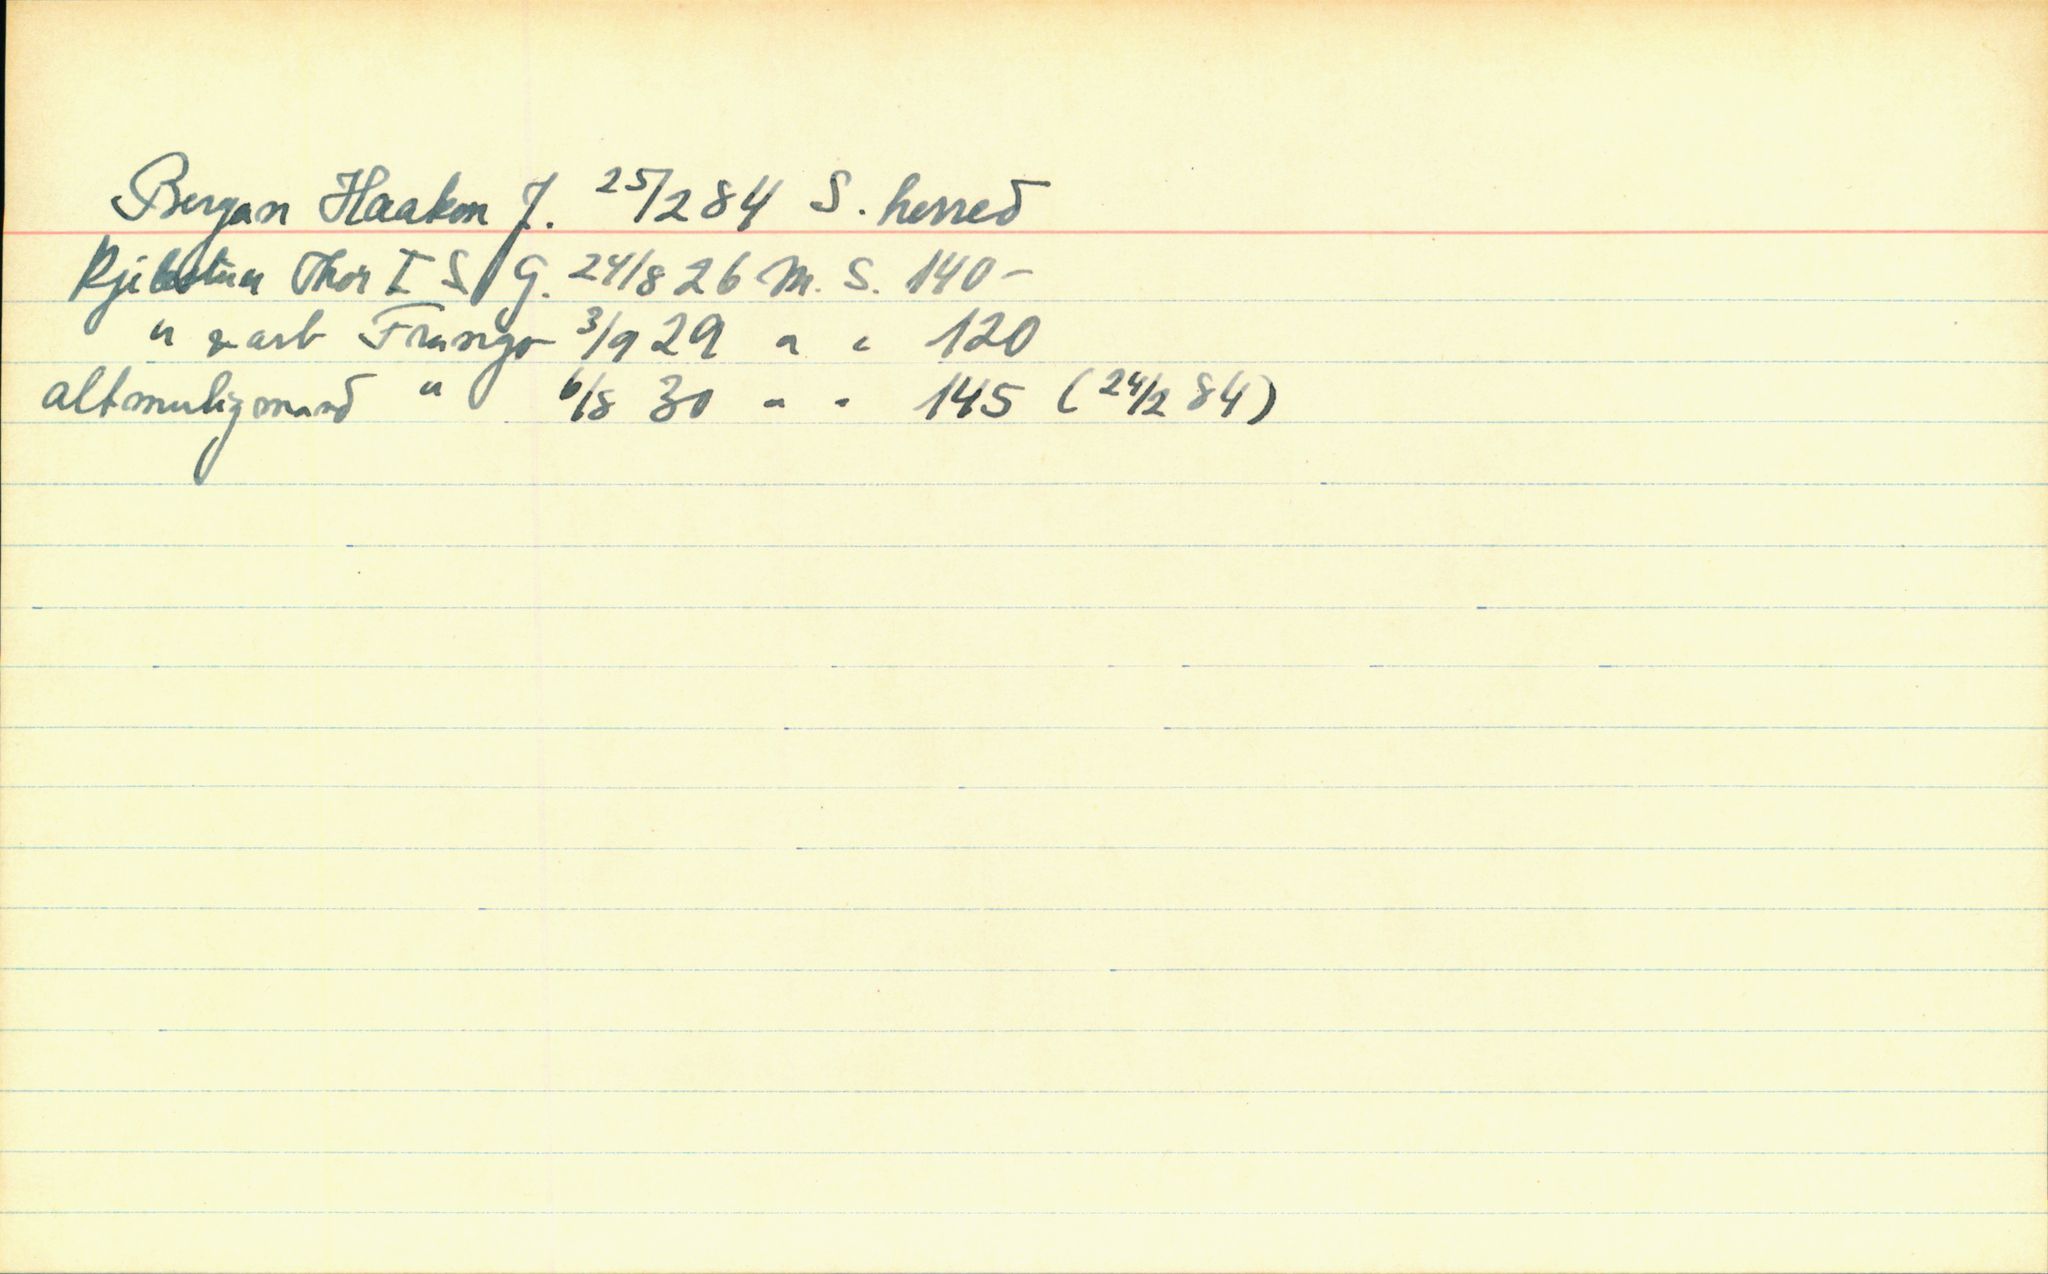 Bergan Haakon J. 25/2 84 S. herred
Kjelstuen Thor I S/G. 24/8 26 M. S. 140-
" & arb Frango 3/9 29 " " 120
altmuligmand " 6/8 30 " " 145 (24/2 84)